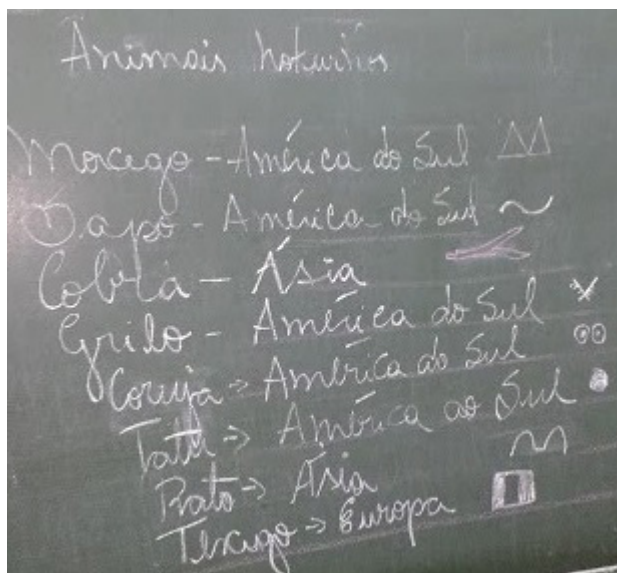 Animais noturnos
Morcego - América do Sul
Sapo - América do Sul
Cobra - Ásia
Grilo - América do Sul
Coruja → América do Sul
Tatu → América do Sul
Rato → Ásia
Texugo → Europa